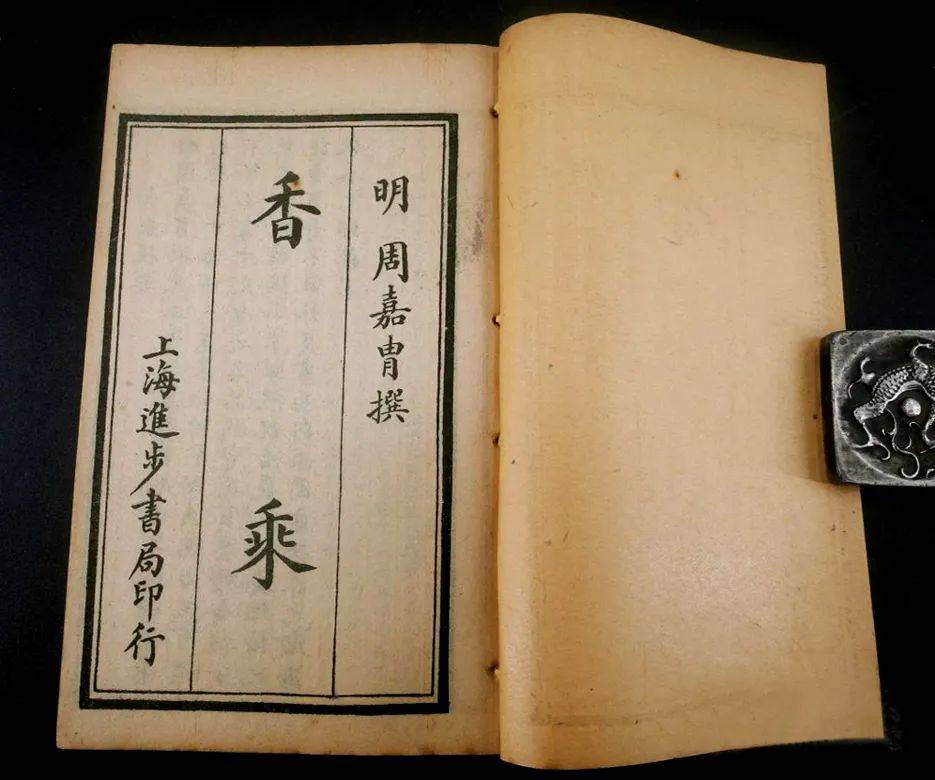 明 周嘉胄撰
香乘
上海進步書局印行